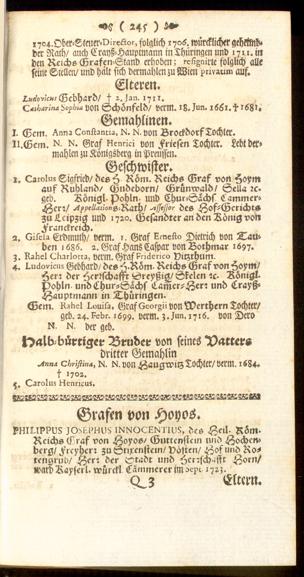 ( 245 )
1704. Ober-Steuer-Director, folglich 1706. würcklicher geheimb-
der Rath/ auch Crayß-Hauptmann in Thüringen und 1711. in
den Reichs Grafen-Stand erhoben; resignirte folglich alle
seine Stellen/ und hält sich dermahlen zu Wien privatim auf.
Elteren.
Ludovicus Gebhard/ † 2. Jan. 1711.
Catharina Sophia von Schönfeld/ verm. 18. Jun. 1661. † 1681.
Gemahlinen.
I. Gem. Anna Constantia, N. N. von Brockdorf Tochter.
II. Gem. N. N. Graf Henrici von Friesen Tochter. Lebt der-
mahlen zu Königsberg in Preussen.
Geschwister.
1. Carolus Sigfrid/ des H. Röm. Reichs Graf von Hoym
auf Ruhland/ Gudeborn/ Grünwald/ Sella ꝛc.
geb. Königl. Pohln- und Chur-Sächs. Cammer-
Herr/ Appellations-Rath/ Assessor des Hof-Gerichts
zu Leipzig und 1720. Gesandter an den König von
Franckreich.
2. Gisela Erdmuth/ verm. 1. Graf Ernesto Dietrich von Tau-
ben 1686. 2. Graf Hans Caspar von Bothmar 1697.
3. Rahel Charlotta, verm. Graf Friderico Vitzthum.
4. Ludovicus Gebhard/ des H. Röm. Reichs Graf von Hoym/
Herr der Herrschafft Dreyßig/ Skelen ꝛc. Königl.
Pohln- und Chur-Sächs. Camer-Herr und Crayß-
Hauptmann in Thüringen.
Gem. Rahel Louisa, Graf Georgii von Werthern Tochter/
geb. 24. Febr. 1699. verm. 3. Jun. 1716. von Dero
N. N. der geb.
Halb-bürtiger Bruder von seines Vatters
dritter Gemahlin
Anna Christina, N. N. von Haugwitz Tochter/ verm. 1684.
† 1702.
5. Carolus Henricus.
Grafen von Hoyos.
PHILIPPUS JOSEPHUS INNOCENTIUS, des Heil. Röm.
Reichs Graf von Hoyos/ Guttenstein und Hochen-
berg/ Freyherr zu Stixenstein/ Vösten/ Hof und Ro-
tengrub/ Herr der Stadt und Herrschafft Horn/
warb Kayserl. würckl. Cämmerer im Sept. 1723.
Q 3 Eltern.